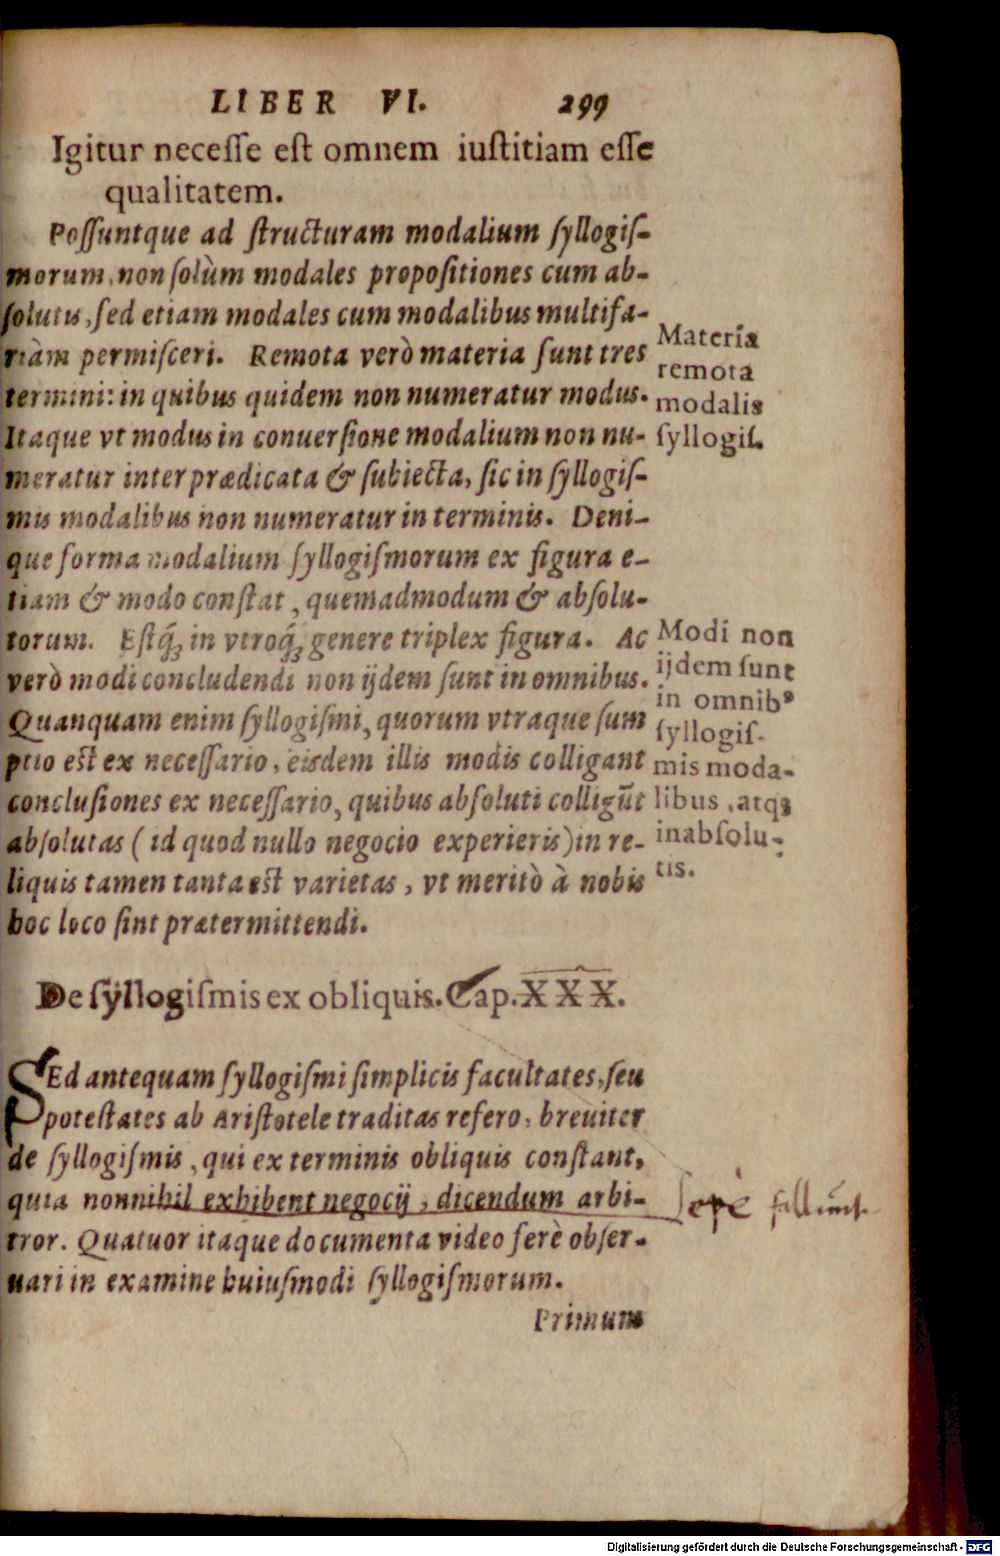 LIBER VI. 299
Igitur necesse est omnem iustitiam esse
qualitatem.
Possuntque ad structuram modalium syllogis-
morum, non solùm modales propositiones cum ab-
solutis, sed etiam modales cum modalibus multifa-
riàm permisceri. Remota verò materia sunt tres
termini: in quibus quidem non numeratur modus.
Itaque vt modus in conuersione modalium non nu-
meratur inter prædicata & subiecta, sic in syllogis-
mis modalibus non numeratur in terminis. Deni-
que forma modalium syllogismorum ex figura e-
tiam & modo constat, quemadmodum & absolu-
torum. Estq́ꝫ in vtroq́ꝫ genere triplex figura. Ac
verò modi concludendi non ijdem sunt in omnibus.
Quanquam enim syllogismi, quorum vtraque sum
ptio est ex necessario, eisdem illis modis colligant
conclusiones ex necessario, quibus absoluti colligũt
absolutas (id quod nullo negocio experieris) in re-
liquis tamen tanta est varietas, vt meritò à nobis
hoc loco sint prætermittendi.
Materia
remota
modalis
syllogis.
Modi non
ijdem sunt
in omnibꝰ
syllogis-
mis moda-
libus, atqꝫ
in absolu-
tis.
De syllogismis ex obliquis. Cap. XXX.
SEd antequam syllogismi simplicis facultates, seu
potestates ab Aristotele traditas refero, breuiter
de syllogismis, qui ex terminis obliquis constant,
quia nonnihil exhibent negocij, dicendum arbi-
tror. Quatuor itaque documenta video ferè obser-
uari in examine huiusmodi syllogismorum.
Sepè fallũnt
Primum
Digitalisierung gefördert durch die Deutsche Forschungsgemeinschaft - DFG